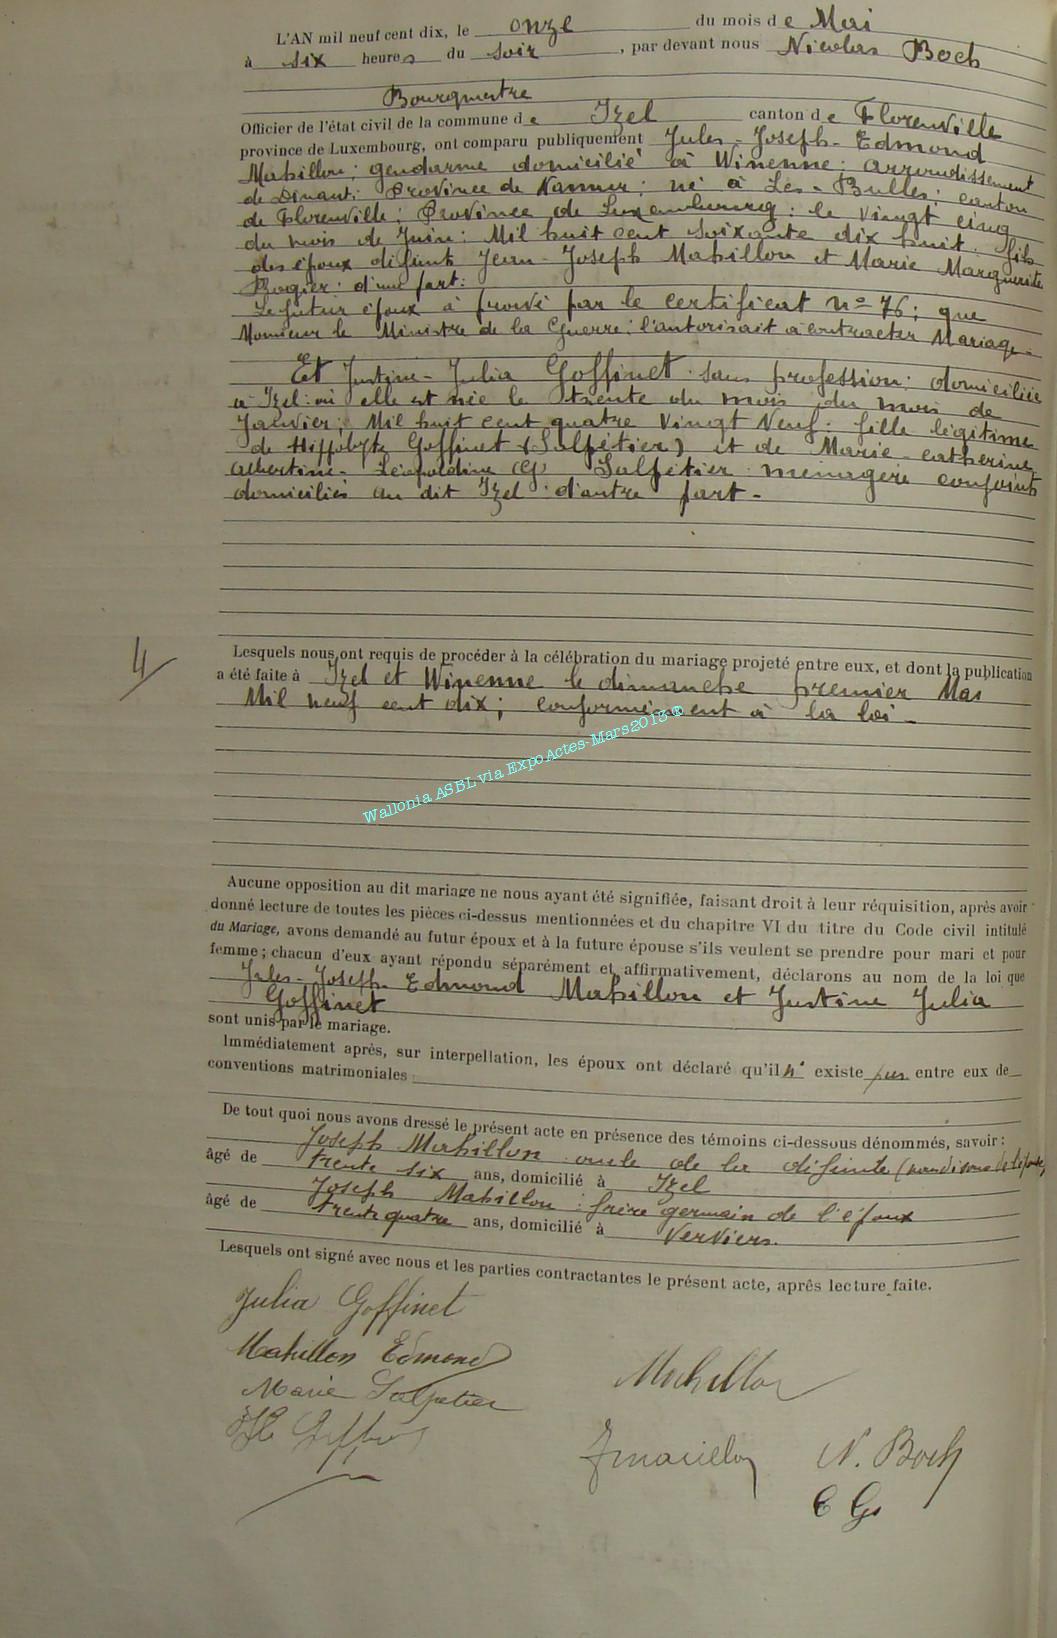 L'AN mil neuf cent dix, le onze du mois de Mai
à six heures du soir, par devant nous Nicolas Boch
Bourgmestre
Officier de l'état civil de la commune de Izel canton de Florenville
province de Luxembourg, ont comparu publiquement Jules-Joseph-Edmond
Mahillon; gendarme domicilié à Winenne; arrondissement
de Dinant; Province de Namur; né à Les-Bulles; canton
de Florenville; Province de Luxembourg; le vingt cinq
du mois de Juin; Mil huit cent soixante dix huit. fils
des époux défunts Jean-Joseph Mahillon et Marie Marguerite
Rogier; d'une part:
Le futur époux à prouvé par le certificat n° 76; que
Monsieur le Ministre de la Guerre; l'autorisait a contracter Mariage-
Et Justine-Julia Goffinet sans profession; domiciliée
à Izel: où elle est née le trente du mois du mois de
Janvier; Mil huit cent quatre Vingt Neuf: fille légitime
de Hippolyte Goffinet (Salpétier) et de Marie-catherine
Albertine-Léopoldine (G) Salpétier ménagère conjoints
domiciliés au dit Izel d'autre part-
4
Lesquels nous ont requis de procéder à la célébration du mariage projeté entre eux, et dont la publication
a été faite à Izel et Winenne le dimanche premier Mai
Mil neuf cent dix; conformément à la loi-
Wallonia ASBL via Expo Actes-Mars2013 ®
Aucune opposition au dit mariage ne nous ayant été signifiée, faisant droit à leur réquisition, après avoir
donné lecture de toutes les pièces ci-dessus mentionnées et du chapitre VI du titre du Code civil intitulé
du Mariage, avons demandé au futur époux et à la future épouse s'ils veulent se prendre pour mari et pour
femme; chacun d'eux ayant répondu séparément et affirmativement, déclarons au nom de la loi que
Jules-Joseph-Edmond Mahillon et Justine Julia
Goffinet
sont unis par le mariage.
Immédiatement après, sur interpellation, les époux ont déclaré qu'il n' existe pas entre eux de
conventions matrimoniales
De tout quoi nous avons dressé le présent acte en présence des témoins ci-dessous dénommés, savoir:
Joseph Mahillon oncle de la défunte
âgé de trente six ans, domicilié à Izel
Joseph Mahillon: frère germain de l'époux
âgé de trente quatre ans, domicilié à Verviers.
Lesquels ont signé avec nous et les parties contractantes le présent acte, après lecture faite.
Julia Goffinet
Mahillon Edmond
Marie Salpetier
Mahillon
N. Boch